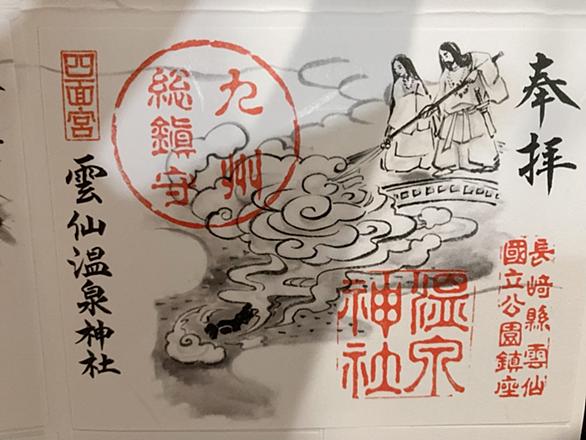 奉拝
長崎縣雲仙
國立公園鎮座
九州
総鎮守
温泉
神社
四面宮
雲仙温泉神社